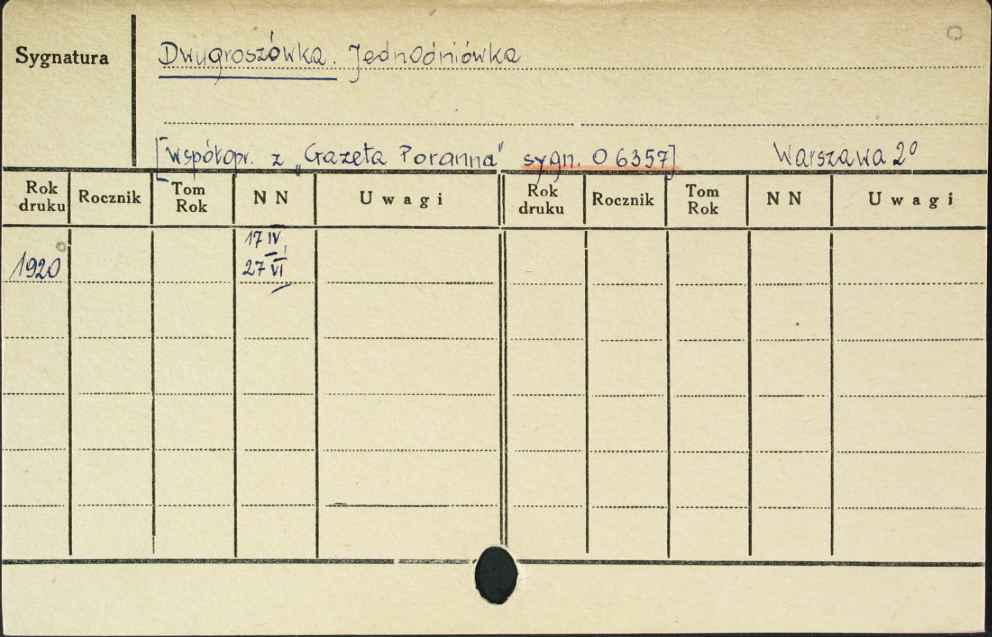 Sygnatura
Dwugroszówka. Jednodniówka
[współopr. z „Gazeta Poranna" sygn. O 6357] Warszawa 2°
Rok druku Rocznik Tom Rok N N U w a g i Rok druku Rocznik Tom Rok N N U w a g i
17 IV,
1920 27 VI